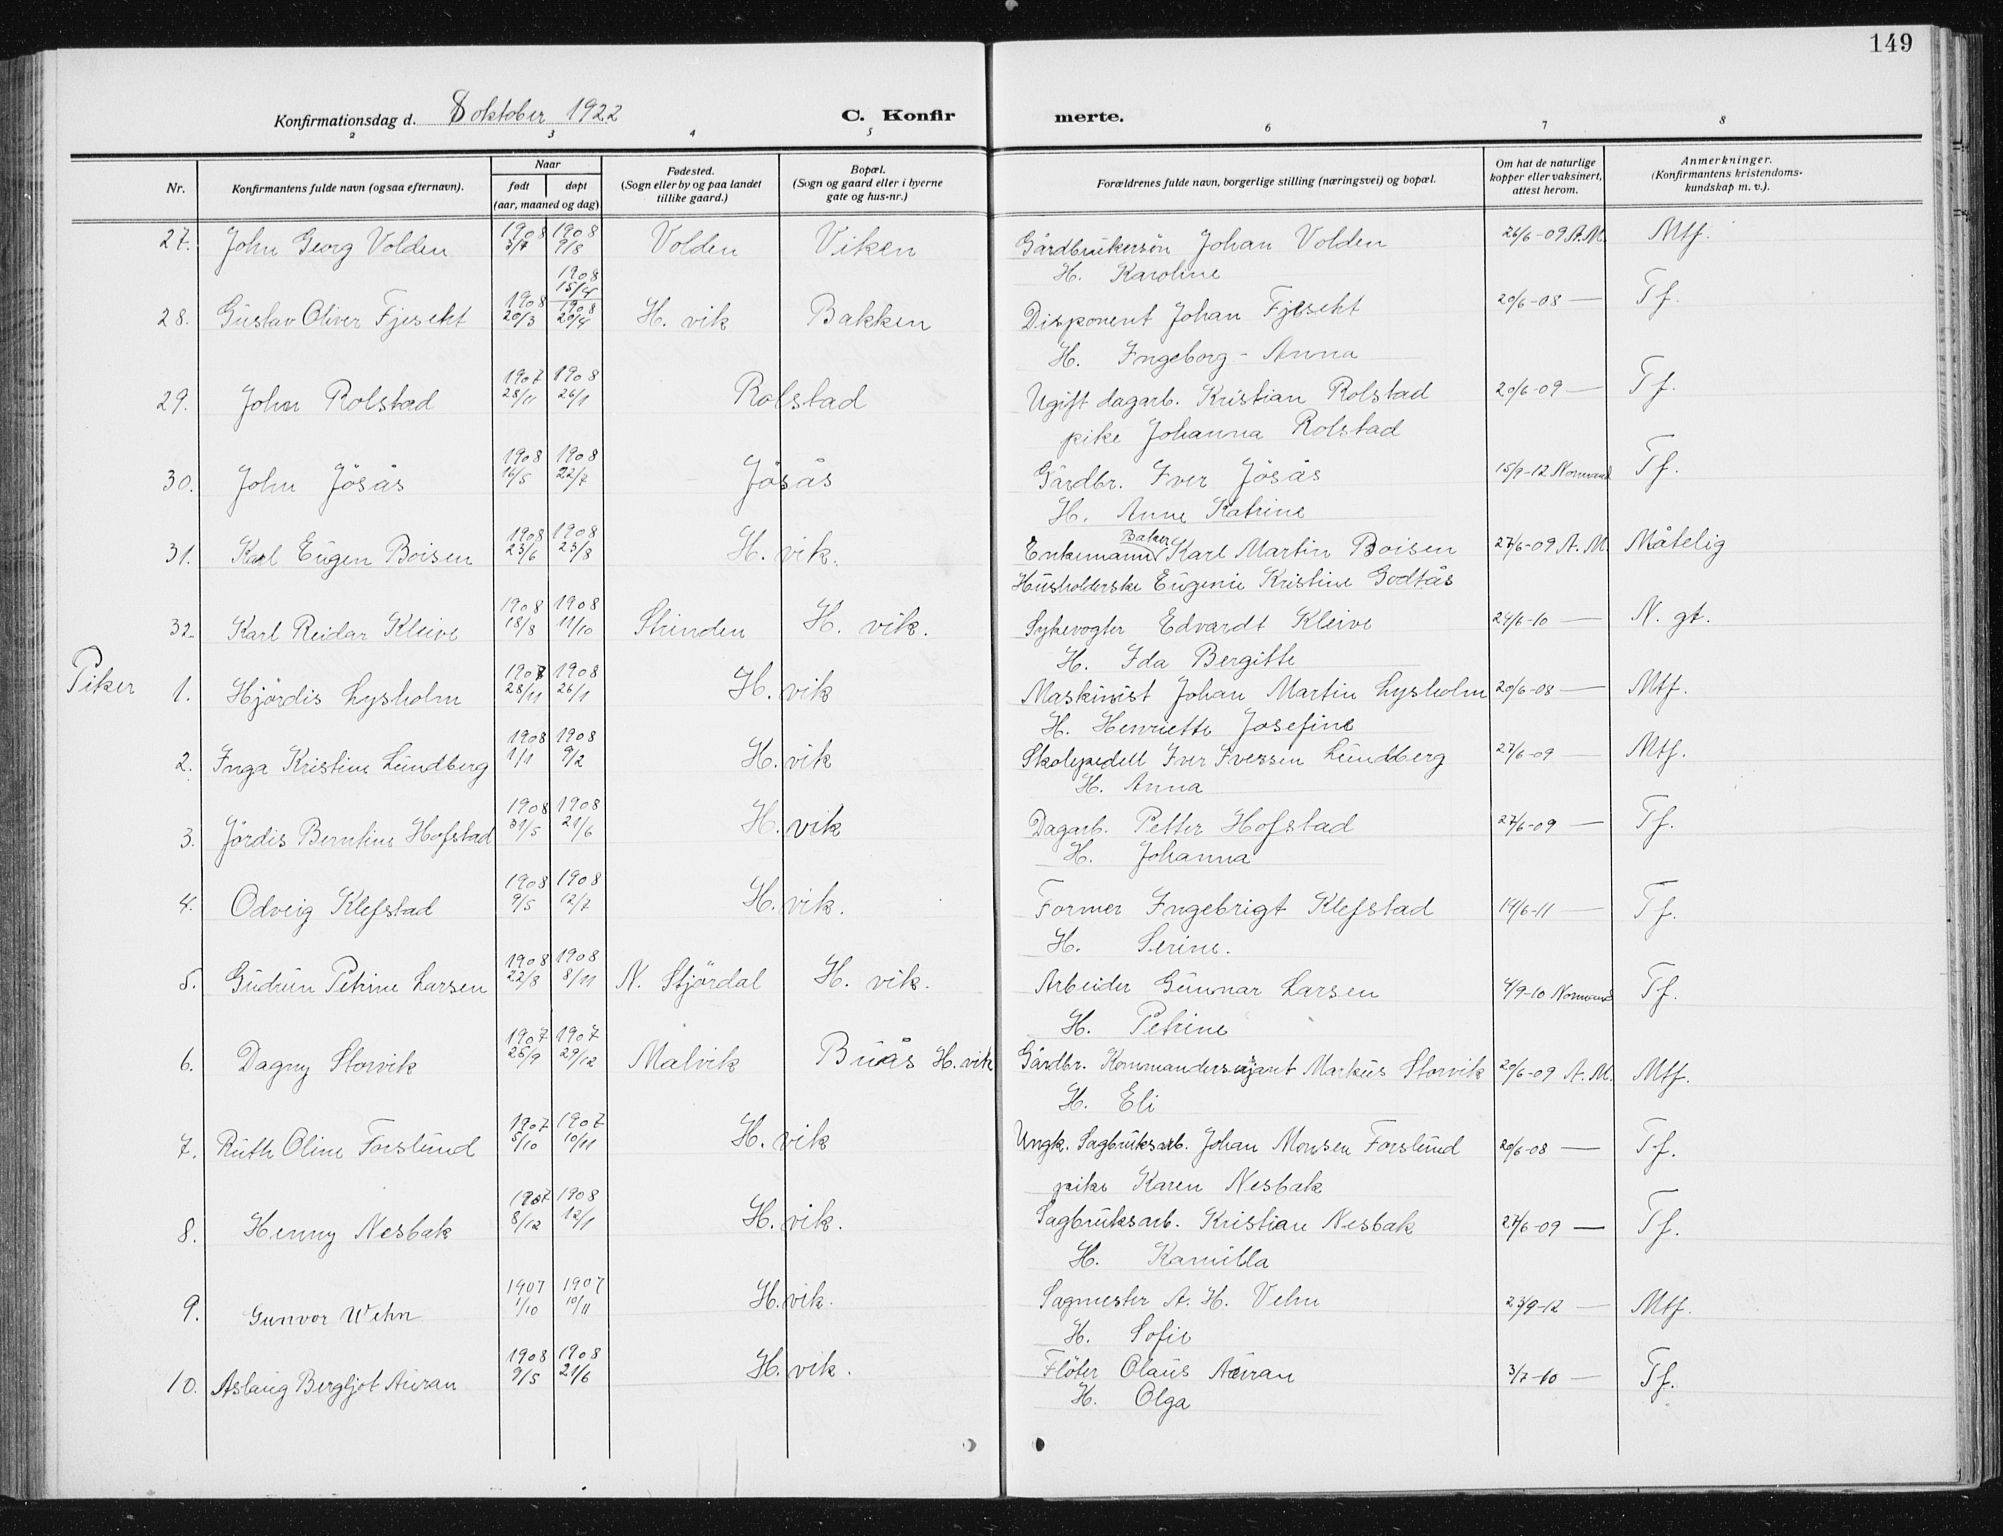 149
Konfirmationsdag d. 8 oktober 1922 C. Konfirmerte.
2 3 4 5 6 7 8
Nr. Konfirmantens fulde navn (ogsaa efternavn). Naar født døpt (aar, maaned og dag) Fødested. (Sogn eller by og paa landet tillike gaard.) Bopæl. (Sogn og gaard eller i byerne gate og hus-nr.) Forældrenes fulde navn, borgerlige stilling (næringsvei) og bopæl. Om hat de naturlige kopper eller vaksinert, attest herom. Anmerkninger. (Konfirmantens kristendoms-kundskap m. v.).
27. John Georg Volden 1908 3/7 1908 9/8 Volden Viken Gårdbrukersön Johan Volden 26/6-09 A.M. Mtf.
H. Karoline
28. Gustav Oliver Fjeseht 1908 20/3 1908 15/4 1908 20/4 H. vik Bakken Disponent Johan Fjeseht 20/6-08 — Tf.
H. Ingeborg - Anna
29. John Rolstad 1907 28/11 1908 26/1 Rolstad Ugift dagarb. Kristian Rolstad 20/6-09 — Tf.
pike Johanna Rolstad
30. John Jösås 1908 16/5 1908 22/7 Jösås Gårdbr. Iver Jösås 15/9-12 Normand Tf.
H. Anne Katrine
31. Karl Eugen Boisen 1908 23/6 1908 23/8 H. vik. Enkemann Baker Karl Martin Boisen 27/6-09 A. M. Måtelig
Husholderske Eugenie Kristine Godtås
32. Karl Reidar Kleive 1908 18/8 1908 11/10 Strinden H. vik. Sykevogter Edvardt Kleive 24/6-10 — N. gt.
H. Ida Bergitte
Piker 1. Hjördis Lysholm 1907 28/11 1908 26/1 H. vik Maskinist Johan Martin Lysholm 20/6-08 — Mtf.
H. Henriette Josefine
2. Inga Kristine Lundberg 1908 1/1 1908 9/2 H. vik Skolepedell Iver Iversen Lundberg 27/6-09 — Mtf.
H. Anna
3. Jördis Berntine Hofstad 1908 31/5 1908 21/6 H. vik Dagarb. Petter Hofstad 27/6-09 — Tf.
H. Johanna
4. Odveig Klefstad 1908 9/5 1908 12/7 H. vik. Former Ingebrigt Klefstad 14/6-11 — Tf.
H. Serine.
5. Gudrun Petrine Larsen 1908 22/8 1908 8/11 N. Stjördal H. vik. Arbeider Gunnar Larsen 4/9-10 Normand Tf.
H. Petrine
6. Dagny Storvik 1907 25/9 1907 29/12 Malvik Buås H. vik Gårdbr. Kommandersejant Markus Storvik 20/6-09 A. M. Mtf.
H. Eli
7. Ruth Oline Forslund 1907 5/10 1907 10/11 H. vik Ungk. Sagbruksarb. Johan Monsen Forslund 20/6-08 — Tf.
pike Karen Nesbak
8. Henny Nesbak 1907 8/12 1908 12/1 H. vik. Sagbruksarb. Kristian Nesbak 27/6-09 — Tf.
H. Kamilla
9. Gunvor Wehn 1907 1/10 1907 10/11 H. vik. Sagmester A. H. Vehn 23/9-12 — Mtf.
H. Sofie
10. Aslaug Bergljot Auran 1908 9/5 1908 21/6 H. vik. Flöter Olaus Auran 3/7-10 — Tf.
H. Olga